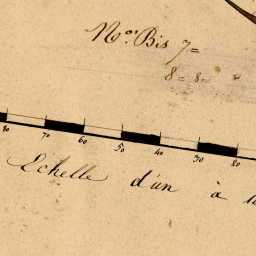 Nos. Bis 7=
8=
80 70 60 50 40 30 80
Echelle d'un à